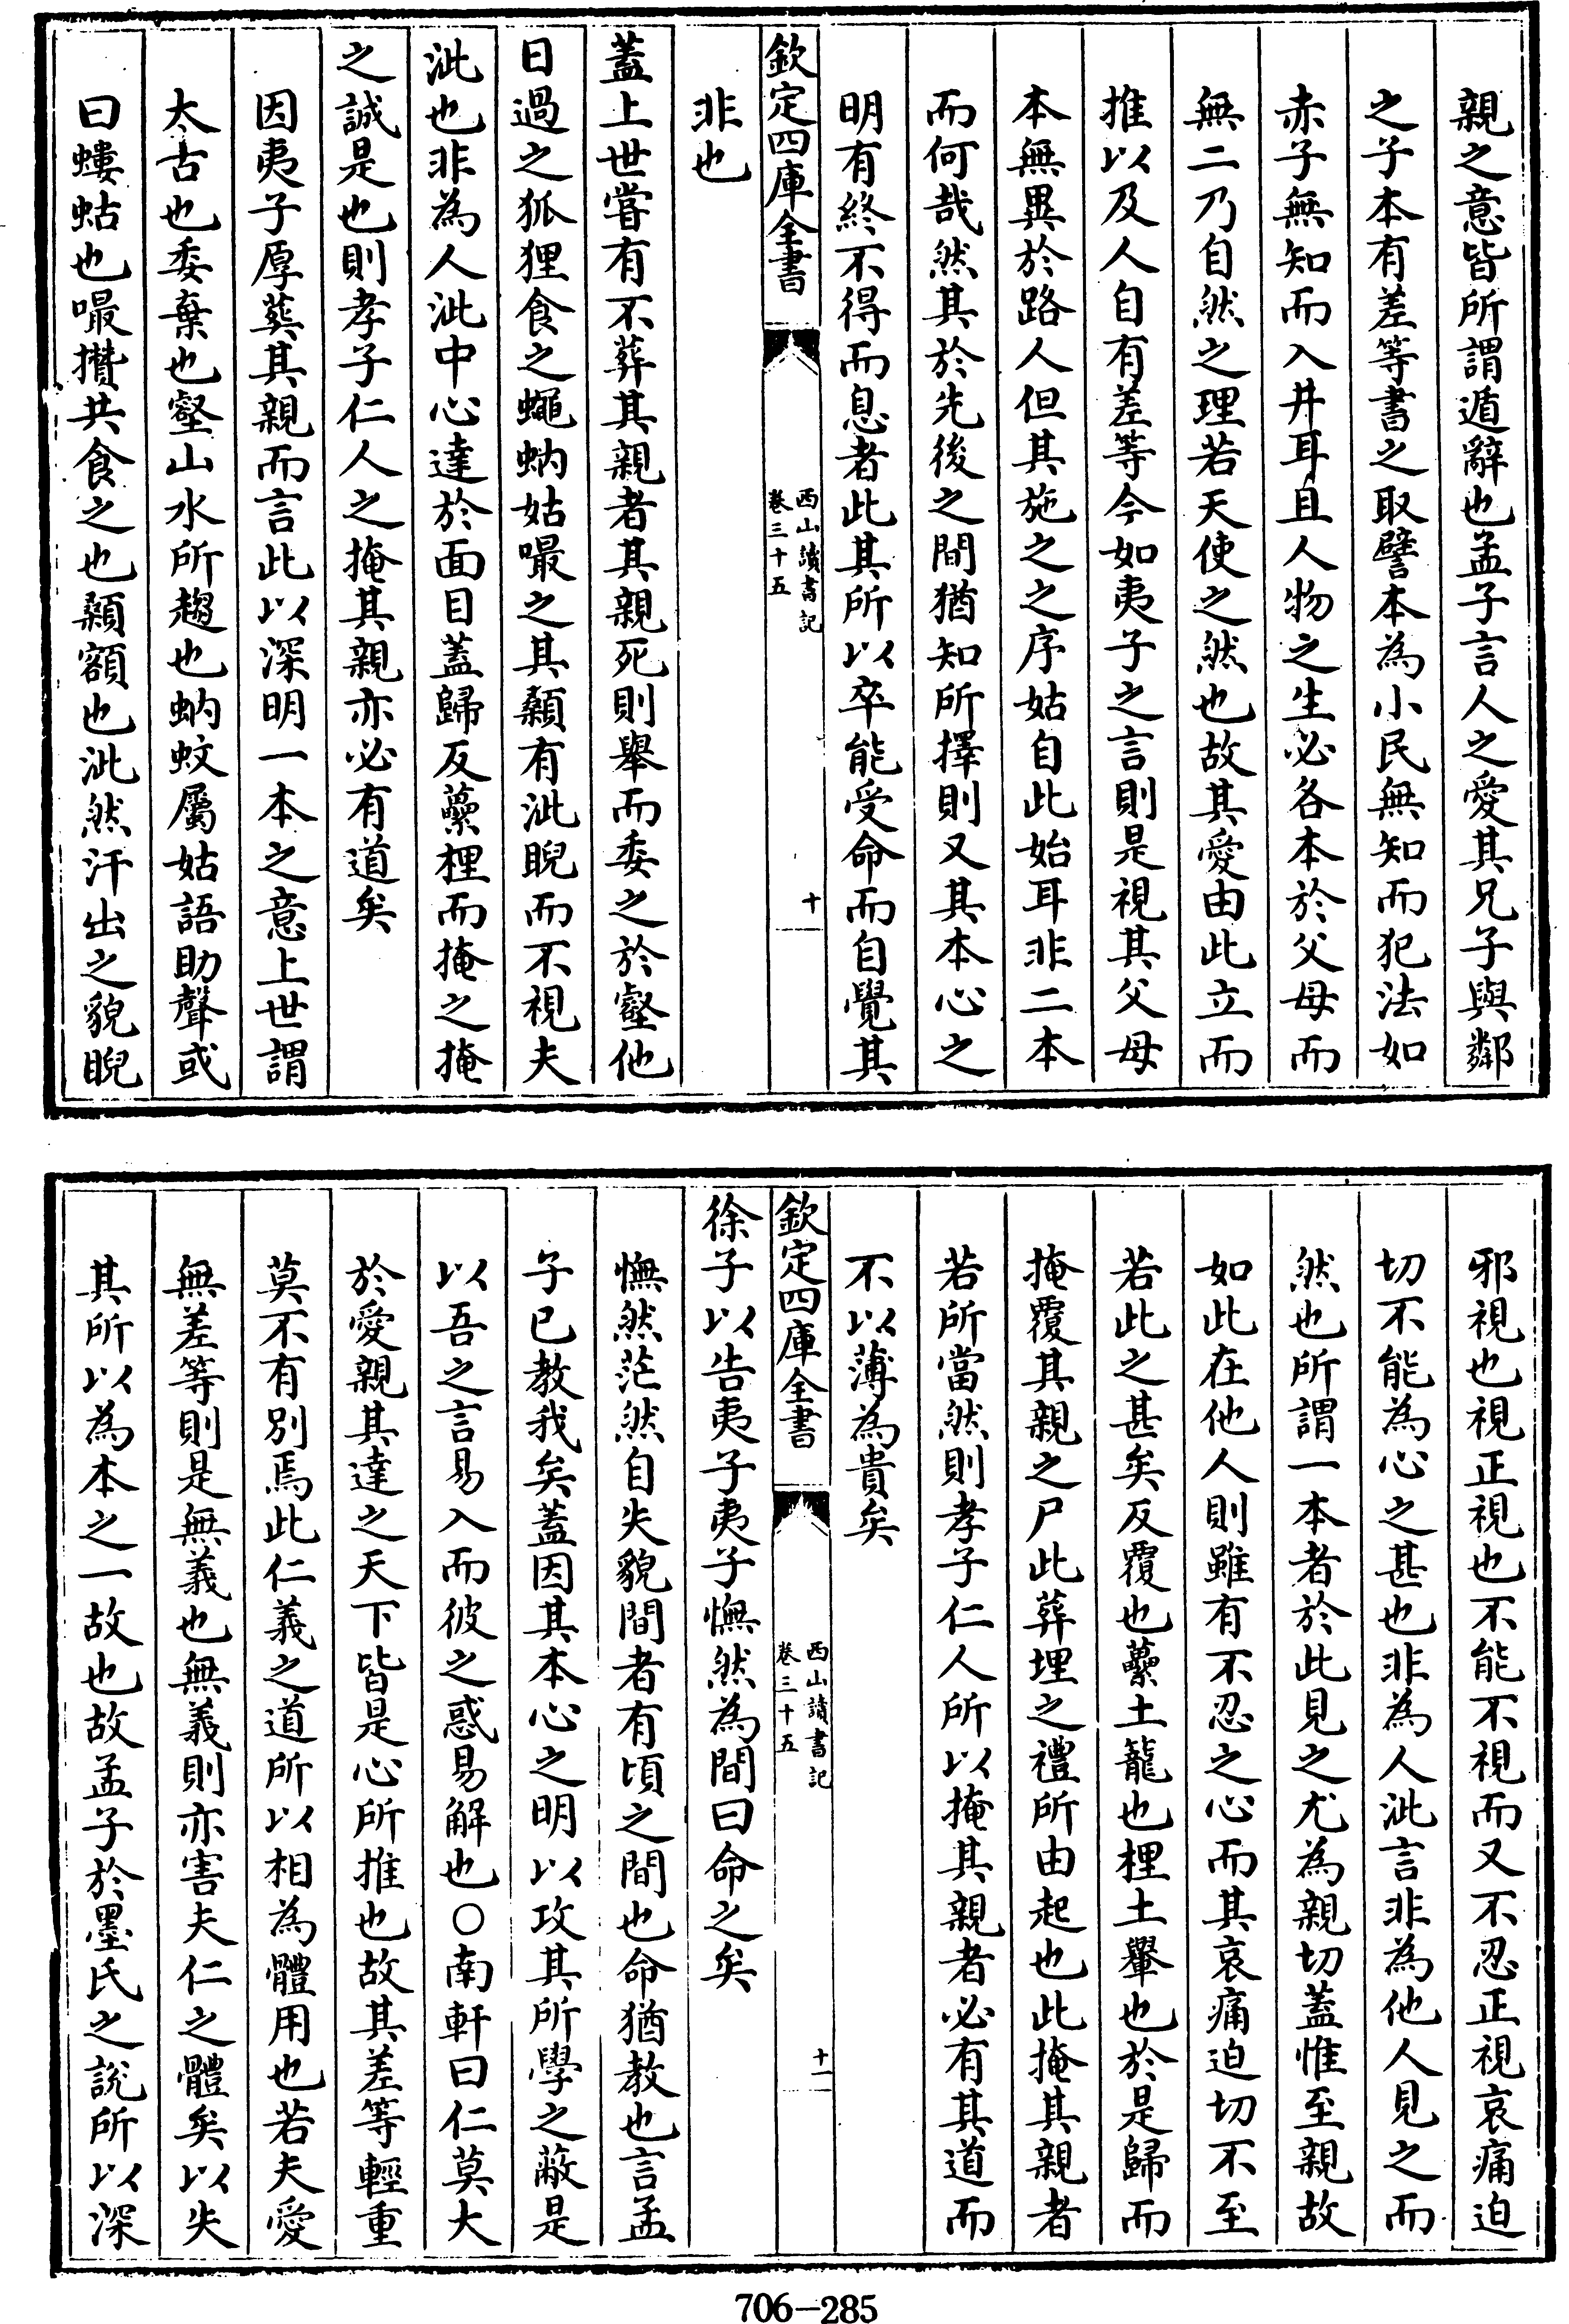 親之意皆所謂遁辭也孟子言人之愛其兄子與鄰
之子本有差等書之取譬本為小民無知而犯法如
赤子無知而入井耳且人物之生必各本於父母而
無二乃自然之理若天使之然也故其愛由此立而
推以及人自有差等今如夷子之言則是視其父母
本無異於路人但其施之之序姑自此始耳非二本
而何哉然其於先後之間猶知所擇則又其本心之
明有終不得而息者此其所以卒能受命而自覺其
欽定四庫全書
西山讀書記
卷三十五
十
非也
蓋上世嘗有不葬其親者其親死則舉而委之於壑他
日過之狐狸食之蠅蚋姑嘬之其顙有泚睨而不視夫
泚也非為人泚中心達於面目蓋歸反虆梩而掩之掩
之誠是也則孝子仁人之掩其親亦必有道矣
因夷子厚葬其親而言此以深明一本之意上世謂
太古也委棄也壑山水所趨也蚋蚊屬姑語助聲或
曰螻蛄也嘬攢共食之也顙額也泚然汗出之貌睨
邪視也視正視也不能不視而又不忍正視哀痛迫
切不能為心之甚也非為人泚言非為他人見之而
然也所謂一本者於此見之尤為親切蓋惟至親故
如此在他人則雖有不忍之心而其哀痛迫切不至
若此之甚矣反覆也虆土籠也梩土轝也於是歸而
掩覆其親之尸此葬埋之禮所由起也此掩其親者
若所當然則孝子仁人所以掩其親者必有其道而
不以薄為貴矣
欽定四庫全書
西山讀書記
卷三十五
十一
徐子以告夷子夷子憮然為間曰命之矣
憮然茫然自失貌間者有頃之間也命猶教也言孟
子已教我矣蓋因其本心之明以攻其所學之蔽是
以吾之言易入而彼之惑易解也○南軒曰仁莫大
於愛親其達之天下皆是心所推也故其差等輕重
莫不有別焉此仁義之道所以相為體用也若夫愛
無差等則是無義也無義則亦害夫仁之體矣以失
其所以為本之一故也故孟子於墨氏之說所以深
706-285